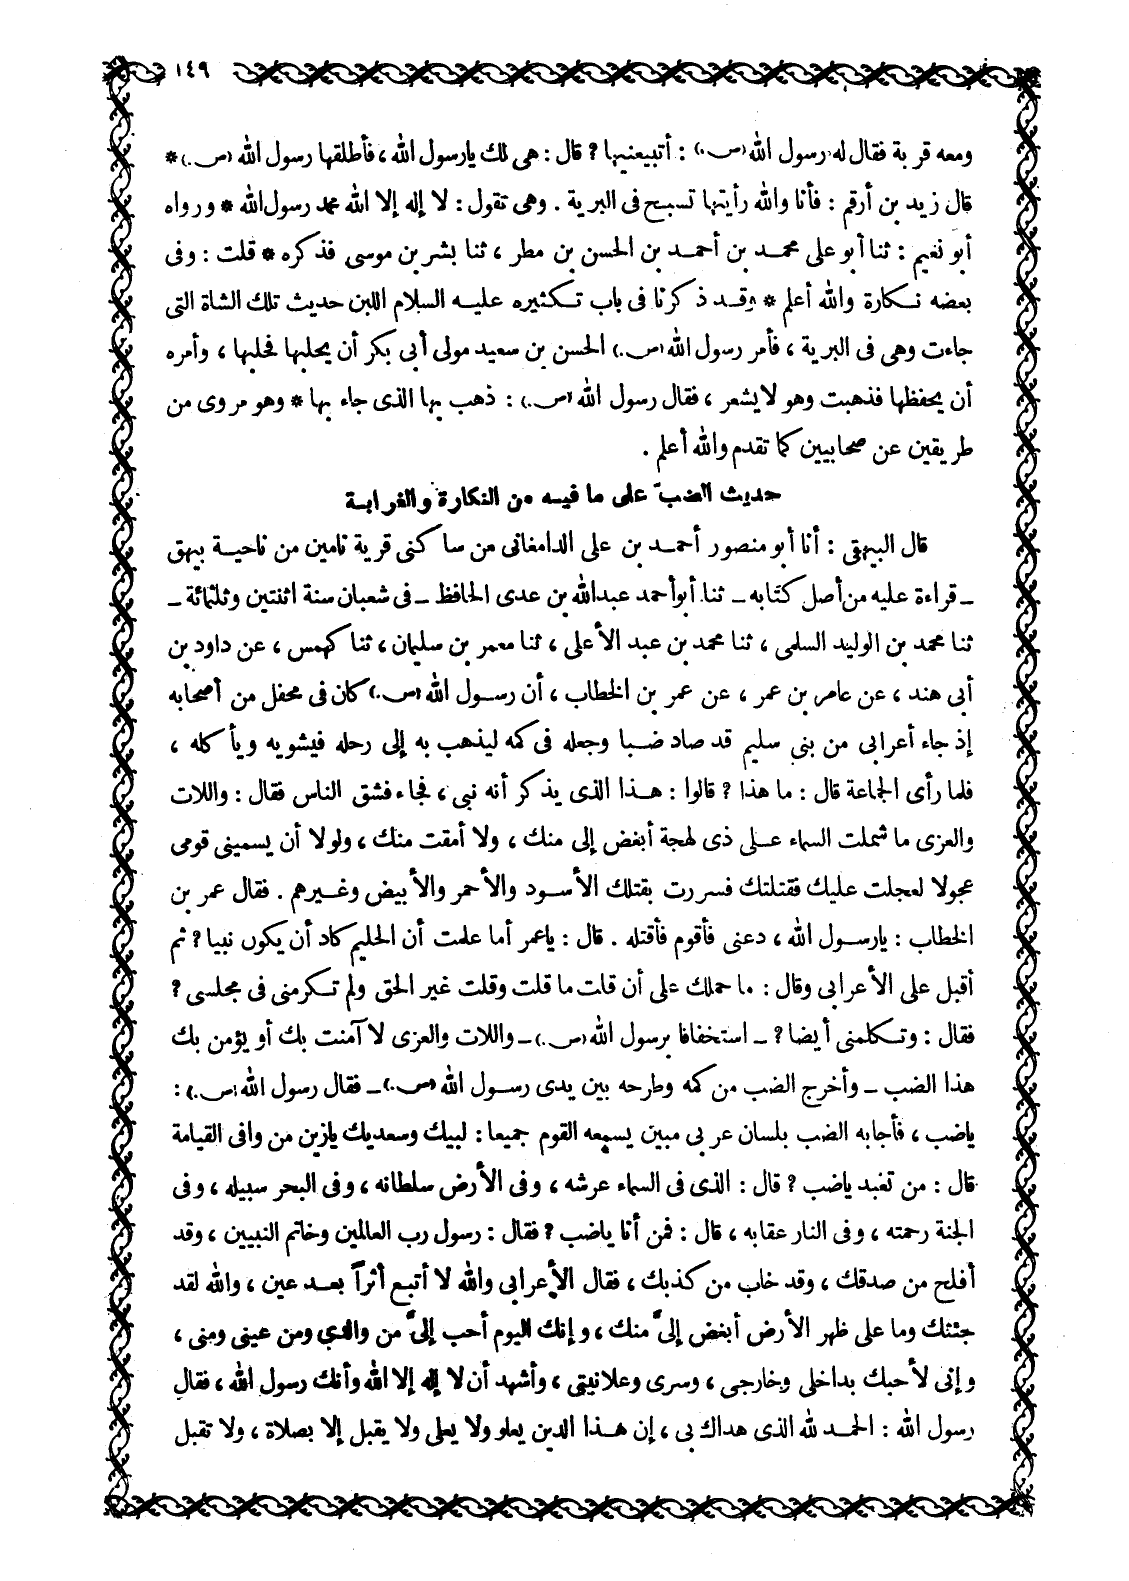 ١٤٩
ومعه قربة فقال له رسول الله (ص.) : أتبيعنيها ? قال : هى لك يارسول الله ، فأطلقها رسول الله (ص.) *
قال زيد بن أرقم : فأنا والله رأيتها تسبح فى البرية . وهى تقول : لا إله إلا الله محمد رسول الله * ورواه
أبو نعيم : ثنا أبو على محمد بن أحمد بن الحسن بن مطر ، ثنا بشر بن موسى فذكره * قلت : وفى
بعضه نكارة والله أعلم * وقد ذكرنا فى باب تكثيره عليه السلام اللبن حديث تلك الشاة التى
جاءت وهى فى البرية ، فأمر رسول الله (ص.) الحسن بن سعيد مولى أبى بكر أن يحلبها فحلبها ، وأمره
أن يحفظها فذهبت وهو لايشعر ، فقال رسول الله (ص.) : ذهب بها الذى جاء بها * وهو مروى من
طريقين عن صحابيين كما تقدم والله أعلم .
حديث الضب على ما فيه من النكارة والغرابة
قال البيهقى : أنا أبو منصور أحمد بن على الدامغانى من ساكنى قرية نامين من ناحية بيهق
ـ قراءة عليه من أصل كتابه ـ ثنا أبو أحمد عبدالله بن عدى الحافظ ـ فى شعبان سنة اثنتين وثلثمائة ـ
ثنا محمد بن الوليد السلمى ، ثنا محمد بن عبد الأعلى ، ثنا معمر بن سليمان ، ثنا كهمس ، عن داود بن
أبى هند ، عن عامر بن عمر ، عن عمر بن الخطاب ، أن رسول الله (ص.) كان فى محفل من أصحابه
إذ جاء أعرابى من بنى سليم قد صاد ضبا وجعله فى كمه ليذهب به إلى رحله فيشويه ويأكله ،
فلما رأى الجماعة قال : ما هذا ? قالوا : هذا الذى يذكر أنه نبى ، فجاء فشق الناس فقال : واللات
والعزى ما شملت السماء على ذى لهجة أبغض إلى منك ، ولا أمقت منك ، ولولا أن يسمينى قومى
عجولا لعجلت عليك فقتلتك فسررت بقتلك الأسود والأحمر والأبيض وغيرهم . فقال عمر بن
الخطاب : يارسول الله ، دعنى فأقوم فأقتله . قال : ياعمر أما علمت أن الحليم كاد أن يكون نبيا ? ثم
أقبل على الأعرابى وقال : ما حملك على أن قلت ما قلت وقلت غير الحق ولم تكرمنى فى مجلسى ?
فقال : وتكلمنى أيضا ? ـ استخفافا برسول الله (ص.) ـ واللات والعزى لا آمنت بك أو يؤمن بك
هذا الضب ـ وأخرج الضب من كمه وطرحه بين يدى رسول الله (ص.) ـ فقال رسول الله (ص.) :
ياضب ، فأجابه الضب بلسان عربى مبين يسمعه القوم جميعا : لبيك وسعديك يازين من وافى القيامة
قال : من تعبد ياضب ? قال : الذى فى السماء عرشه ، وفى الأرض سلطانه ، وفى البحر سبيله ، وفى
الجنة رحمته ، وفى النار عقابه ، قال : فمن أنا ياضب ? فقال : رسول رب العالمين وخاتم النبيين ، وقد
أفلح من صدقك ، وقد خاب من كذبك ، فقال الأعرابى والله لا أتبع أثراً بعد عين ، والله لقد
جئتك وما على ظهر الأرض أبغض إلىّ منك ، وإنك اليوم أحب إلىّ من والدى ومن عينى ومنى ،
وإنى لأحبك بداخلى وخارجى ، وسرى وعلانيتى ، وأشهد أن لا إله إلا الله وأنك رسول الله ، فقال
رسول الله : الحمد لله الذى هداك بى ، إن هذا الدين يعلو ولا يعلى ولا يقبل إلا بصلاة ، ولا تقبل